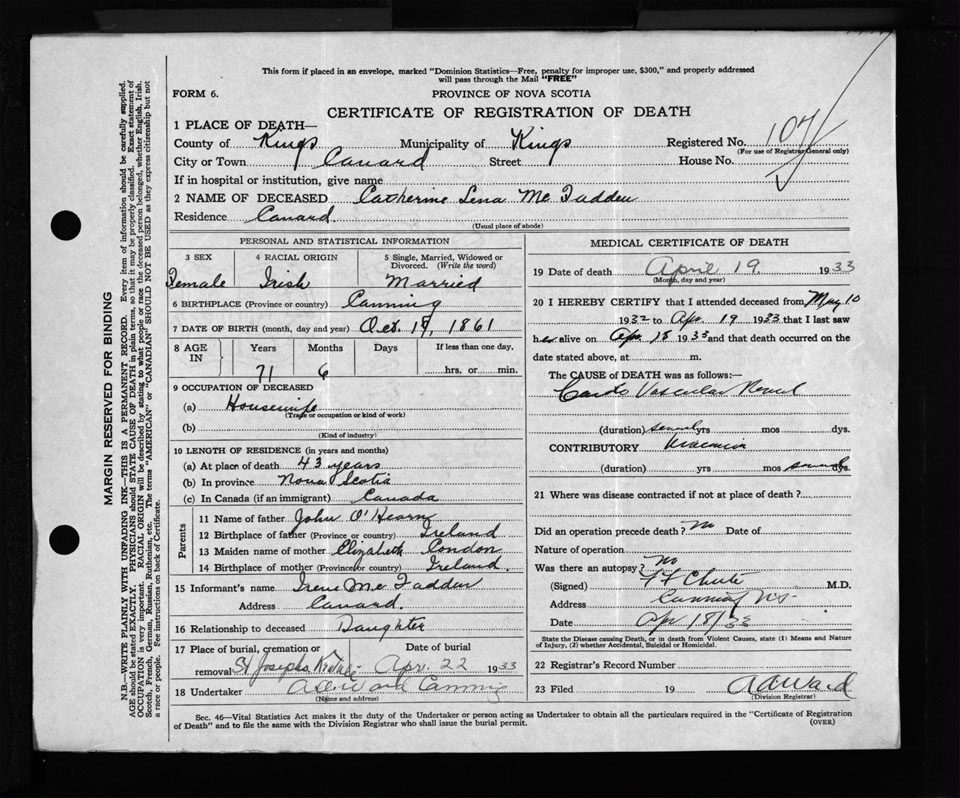 This form if placed in an envelope, marked "Dominion Statistics—Free, penalty for improper use, $300," and properly addressed
will pass through the Mail "FREE"
FORM 6.
PROVINCE OF NOVA SCOTIA
CERTIFICATE OF REGISTRATION OF DEATH
1 PLACE OF DEATH—
County of Kings Municipality of Kings Registered No. 107
(For use of Registrar General only)
City or Town Canard Street House No.
If in hospital or institution, give name
2 NAME OF DECEASED Catherine Lena Mc Fadden
Residence Canard
(Usual place of abode)
PERSONAL AND STATISTICAL INFORMATION
3 SEX 4 RACIAL ORIGIN 5 Single, Married, Widowed or
Divorced. (Write the word)
Female Irish Married
6 BIRTHPLACE (Province or country) Canning
7 DATE OF BIRTH (month, day and year) Oct. 19, 1861
8 AGE IN Years Months Days If less than one day.
71 6 hrs. or min.
9 OCCUPATION OF DECEASED
(a) Housewife
(Trade or occupation or kind of work)
(b)
(Kind of industry)
10 LENGTH OF RESIDENCE (in years and months)
(a) At place of death 43 years
(b) In province Nova Scotia
(c) In Canada (if an immigrant) Canada
Parents
11 Name of father John O'Hearn
12 Birthplace of father (Province or country) Ireland
13 Maiden name of mother Elizabeth Condon
14 Birthplace of mother (Province or country) Ireland.
15 Informant's name Irene Mc Fadden
Address Canard.
16 Relationship to deceased Daughter
17 Place of burial, cremation or Date of burial
removal St Josephs Apr. 22 1933
18 Undertaker Canning
(Name and address)
MEDICAL CERTIFICATE OF DEATH
19 Date of death April 19. 1933
(Month, day and year)
20 I HEREBY CERTIFY that I attended deceased from May 10
1932 to Apr 19 1933 that I last saw
her alive on Apr 18 1933 and that death occurred on the
date stated above, at m.
The CAUSE of DEATH was as follows:—
Cardio Vascular Renal
(duration) several yrs mos dys.
CONTRIBUTORY Uraemia
(duration) yrs mos several dys.
21 Where was disease contracted if not at place of death?
Did an operation precede death? No Date of
Nature of operation
Was there an autopsy? No
(Signed) F F Chute M.D.
Address Canning N.S.
Date Apr 18/33
State the Disease causing Death, or in death from Violent Causes, state (1) Means and Nature
of Injury, (2) whether Accidental, Suicidal or Homicidal.
22 Registrar's Record Number
23 Filed 19 A A Ward
(Division Registrar)
Sec. 46—Vital Statistics Act makes it the duty of the Undertaker or person acting as Undertaker to obtain all the particulars required in the "Certificate of Registration
of Death" and to file the same with the Division Registrar who shall issue the burial permit.
(OVER)
MARGIN RESERVED FOR BINDING
N.B.—WRITE PLAINLY WITH UNFADING INK—THIS IS A PERMANENT RECORD. Every item of information should be carefully supplied.
AGE should be stated EXACTLY. PHYSICIANS should STATE CAUSE OF DEATH in plain terms, so that it may be properly classified. Exact statement of
OCCUPATION is very important. RACIAL ORIGIN will be described by stating to what people or race the deceased person belonged, whether English, Irish,
Scotch, French, German, Russian, Ruthenian, etc. The terms "AMERICAN" or "CANADIAN" SHOULD NOT BE USED as they express citizenship but not
a race or people. Fee instructions on back of Certificate.